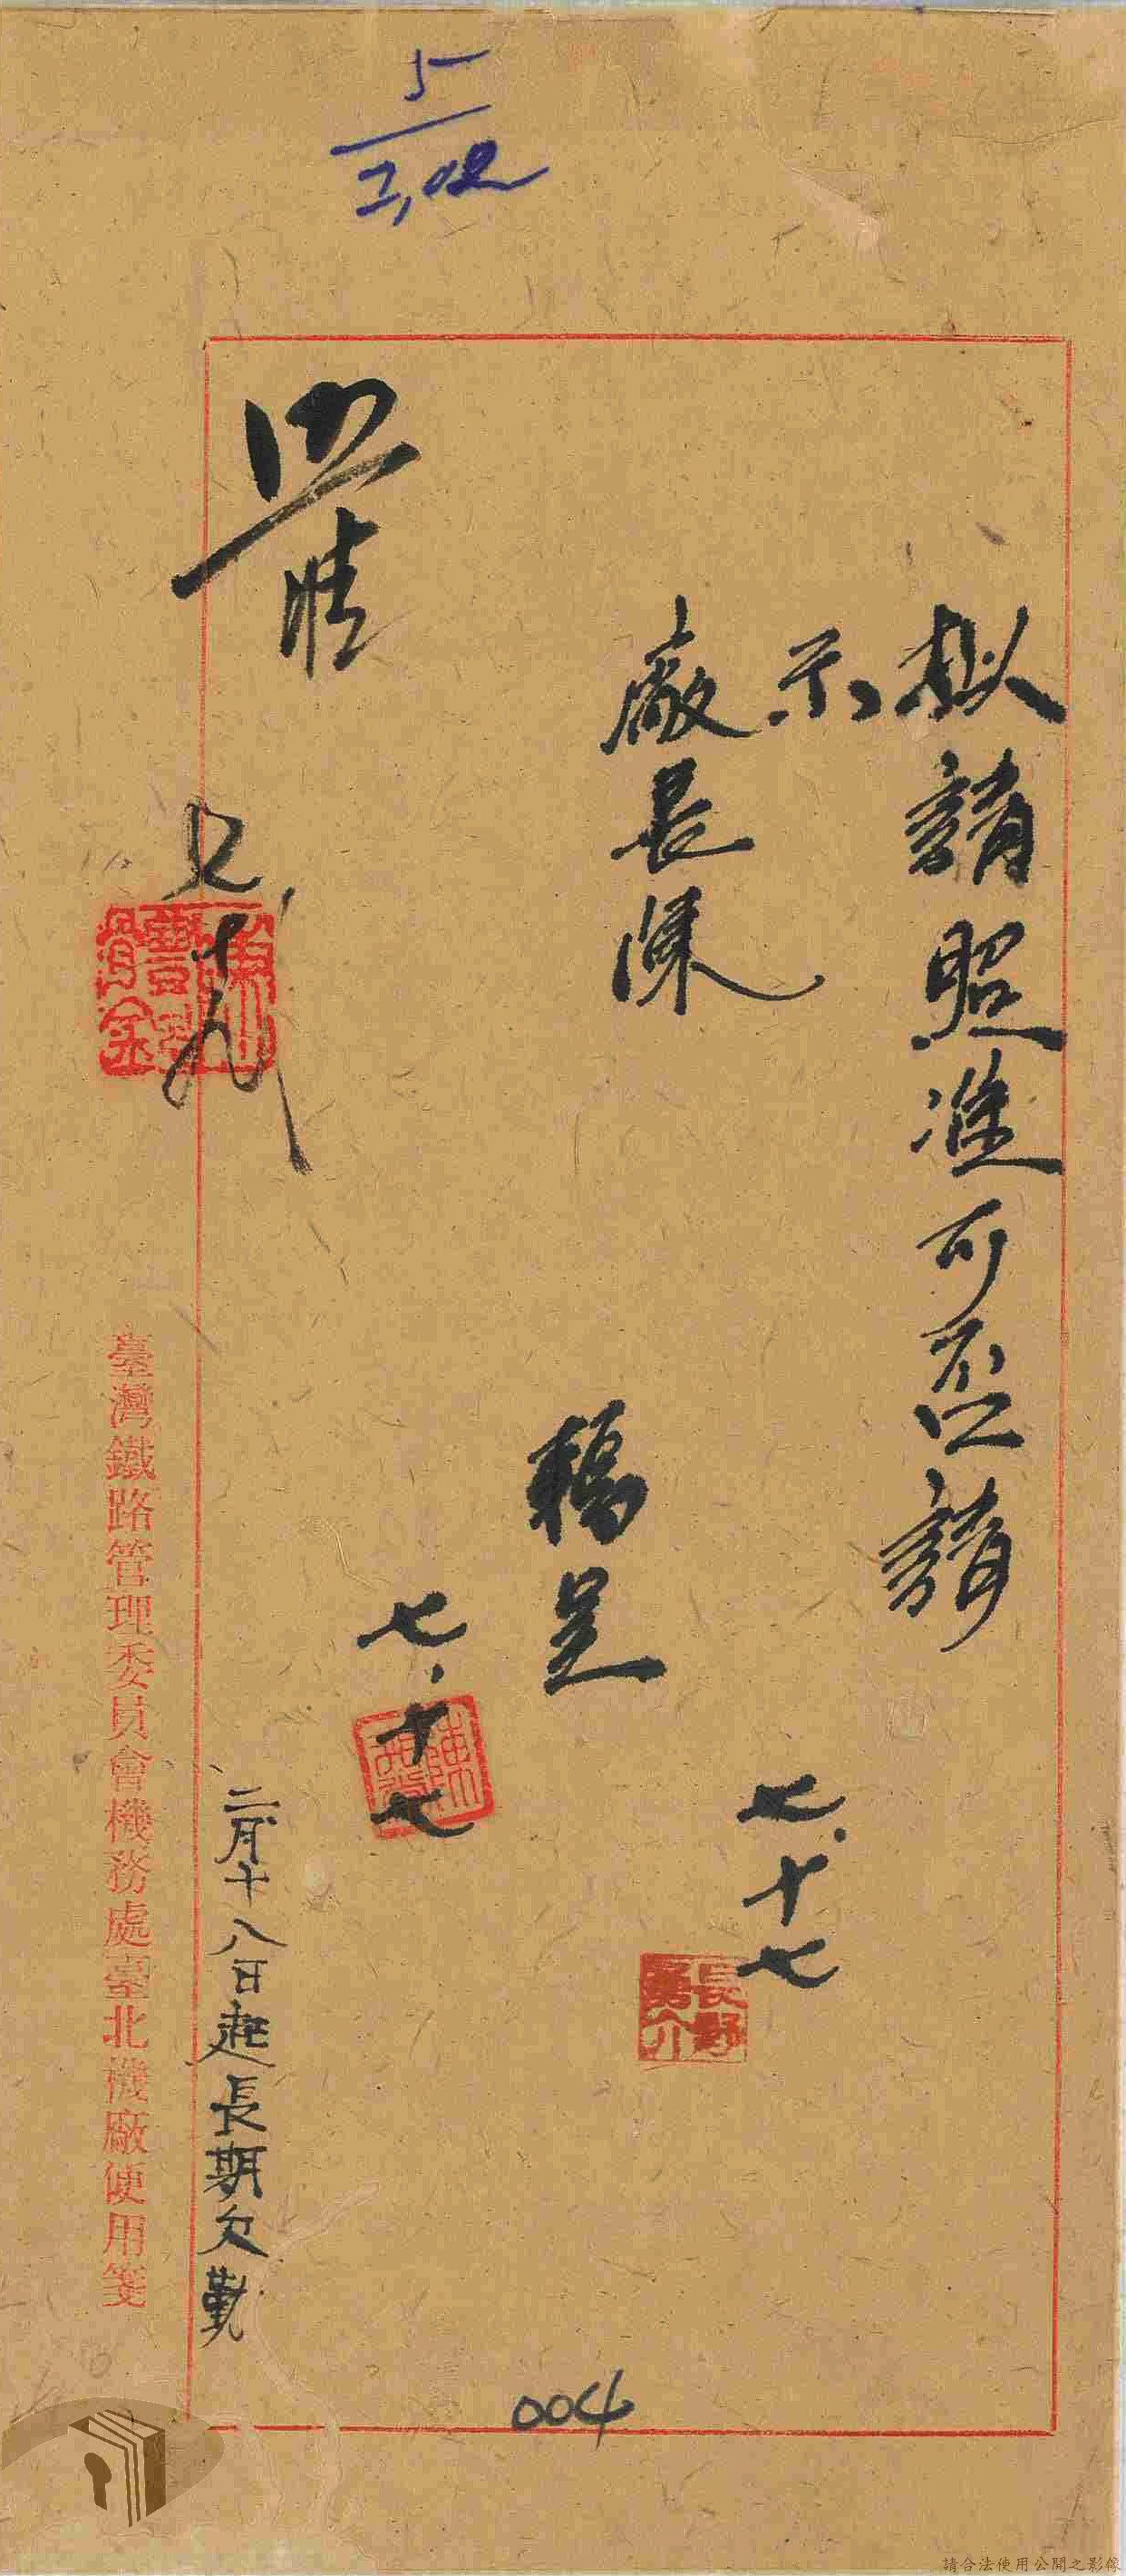 5
2,02
拟請照准可否請
示
七.十七
長野萬介
廠長陳
稿呈
七.十七
照准
二月十八日起長期欠勤
臺灣鐵路管理委員會機務處臺北機廠便用箋
004
請合法使用公開之影像